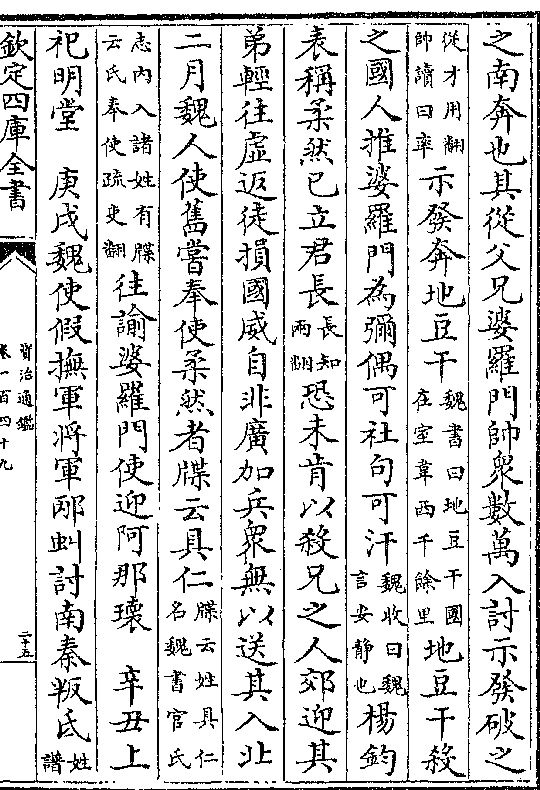 之南奔也其從父兄婆羅門帥衆數萬入討示發破之
從才用翻
帥讀曰率
示發奔地豆干
魏書曰地豆干國
在室韋西千餘里
地豆干殺
之國人推婆羅門為彌偶可社句可汗
魏收曰魏
言安靜也
楊鈞
表稱柔然已立君長
長知
兩翻
恐未肯以殺兄之人郊迎其
弟輕往虚返徒損國威自非廣加兵衆無以送其入北
二月魏人使舊嘗奉使柔然者牒云具仁
牒云姓具仁
名魏書官氏
志内入諸姓有牒
云氏奉使疏吏翻
往諭婆羅門使迎阿那瓌　辛丑上
祀明堂　庚戌魏使假撫軍將軍邴虯討南秦叛氐
姓
譜
欽定四庫全書
資治通鑑
卷一百四十九
二十五